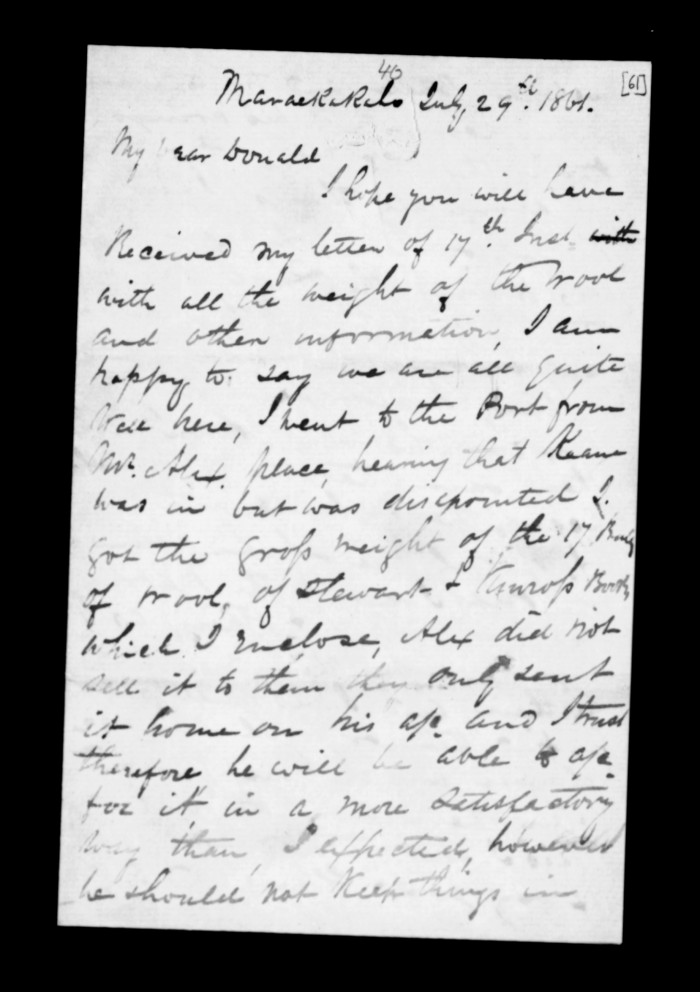 40
[61]
Maraekakaho July 29th. 1861.
My Dear Donald
I hope you will have
Received my letter of 17th. Inst. with
with all the weight of the Wool
and other information, I am
happy to say we are all quite
well here, I went to the Port from
Mr. Alex. place, hearing that Keane
was in but was disapointed I.
got the gross weight of the 17 Bales
of wool, of Stewart & Kinross Books
which I enclose, Alex did not
sell it to them they only sent
it home on his a/c and I trust
therefore he will be able to a/c
for it in a more satisfactory
way than I expected, however
he should not Keep things in